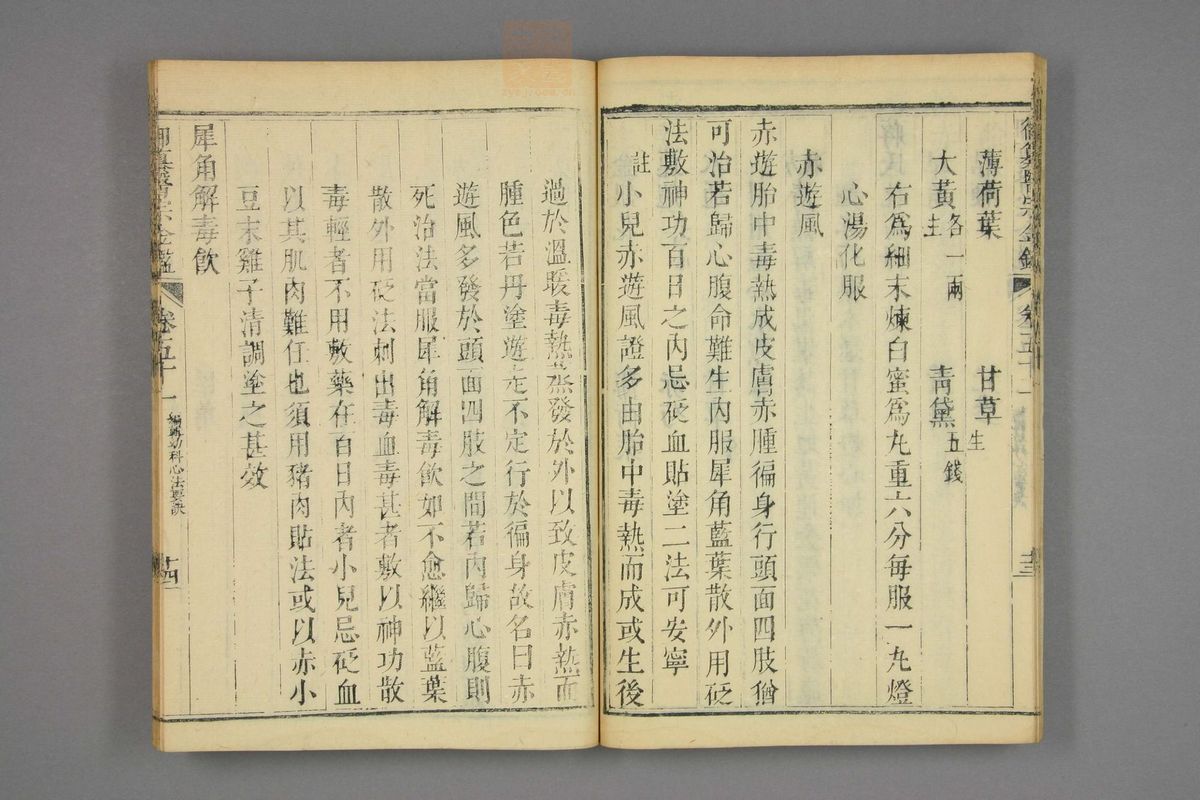 薄荷葉 甘草生
大黃生各一兩 青黛五錢
右爲細末煉白蜜爲丸重六分每服一丸燈
心湯化服
赤遊風
赤遊胎中毒熱成皮膚赤腫徧身行頭面四肢猶
可治若歸心腹命難生內服犀角藍葉散外用砭
法敷神功百日之內忌砭血貼塗二法可安寧
註小兒赤遊風證多由胎中毒熱而成或生後
過於溫暖毒熱蒸發於外以致皮膚赤熱而
腫色若丹塗遊走不定行於徧身故名曰赤
遊風多發於頭面四肢之間若內歸心腹則
死治法當服犀角解毒飲如不愈繼以藍葉
散外用砭法刺出毒血毒甚者敷以神功散
毒輕者不用敷藥在百日內者小兒忌砭血
以其肌肉難任也須用豬肉貼法或以赤小
豆末雞子清調塗之甚效
犀角解毒飲
卷五十一 編輯幼科心法要訣 十四